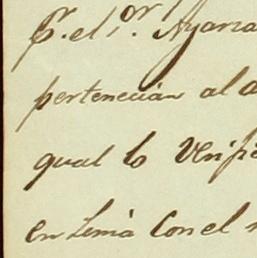 P. el Sr. Ayarza
pertenecian al
qual lo Verifi
en Lima Con el